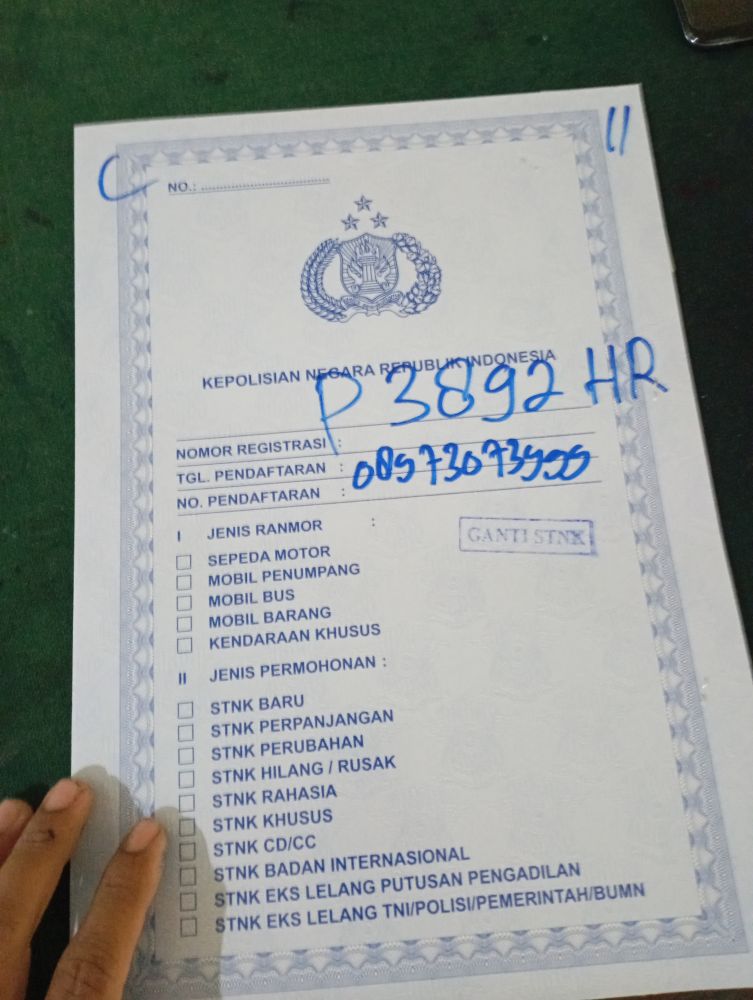 C
11
NO.: ....................................
KEPOLISIAN NEGARA REPUBLIK INDONESIA
P 3892 HR
NOMOR REGISTRASI :
TGL. PENDAFTARAN :
NO. PENDAFTARAN :
I JENIS RANMOR :
GANTI STNK
SEPEDA MOTOR
MOBIL PENUMPANG
MOBIL BUS
MOBIL BARANG
KENDARAAN KHUSUS
II JENIS PERMOHONAN :
STNK BARU
STNK PERPANJANGAN
STNK PERUBAHAN
STNK HILANG / RUSAK
STNK RAHASIA
STNK KHUSUS
STNK CD/CC
STNK BADAN INTERNASIONAL
STNK EKS LELANG PUTUSAN PENGADILAN
STNK EKS LELANG TNI/POLISI/PEMERINTAH/BUMN